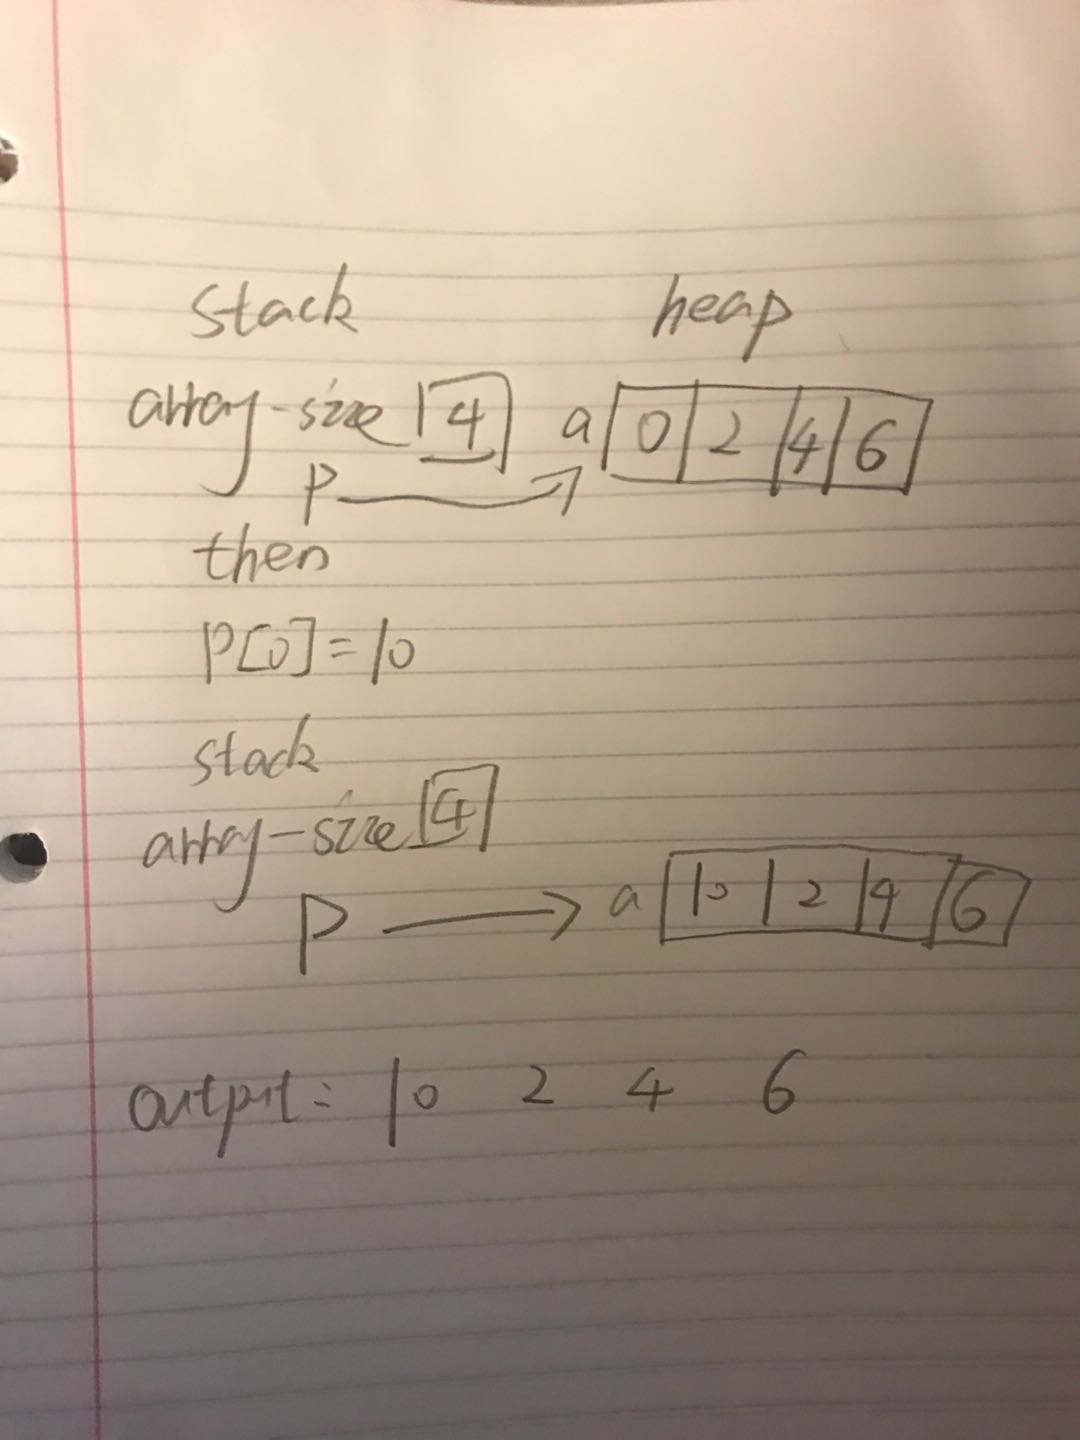 stack heap
array-size 4 a 0 2 4 6
p
then
p[0]=10
stack
array-size 4
p a 10 2 4 6
output: 10 2 4 6